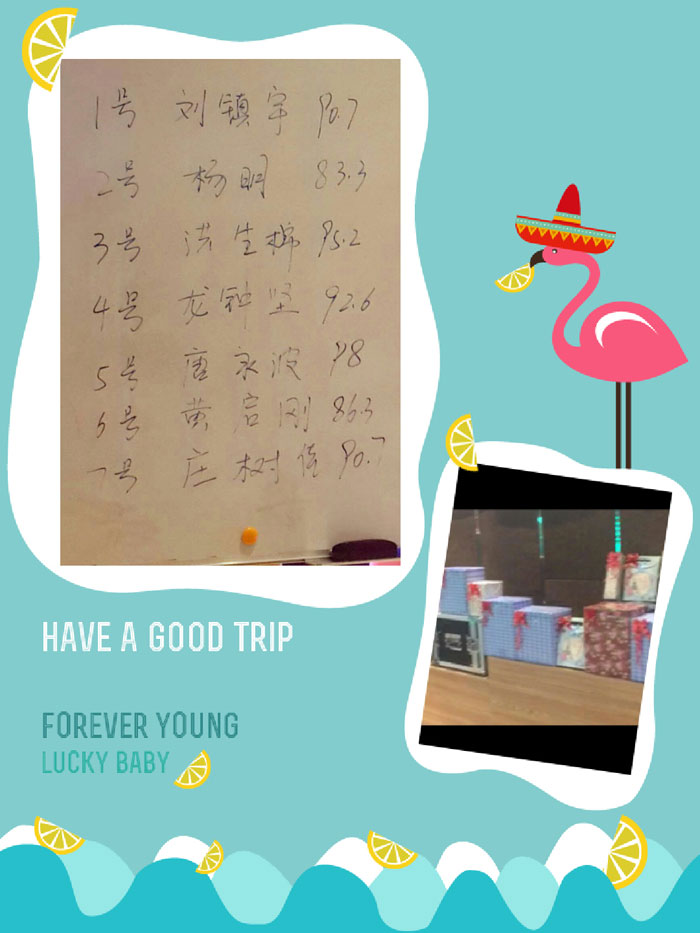 1号 刘镇宇 90.7
2号 杨明 83.3
3号 洪生棉 95.2
4号 龙钟坚 92.6
5号 唐永波 98
6号 黄启刚 86.3
7号 庄树佳 90.7
HAVE A GOOD TRIP
FOREVER YOUNG
LUCKY BABY